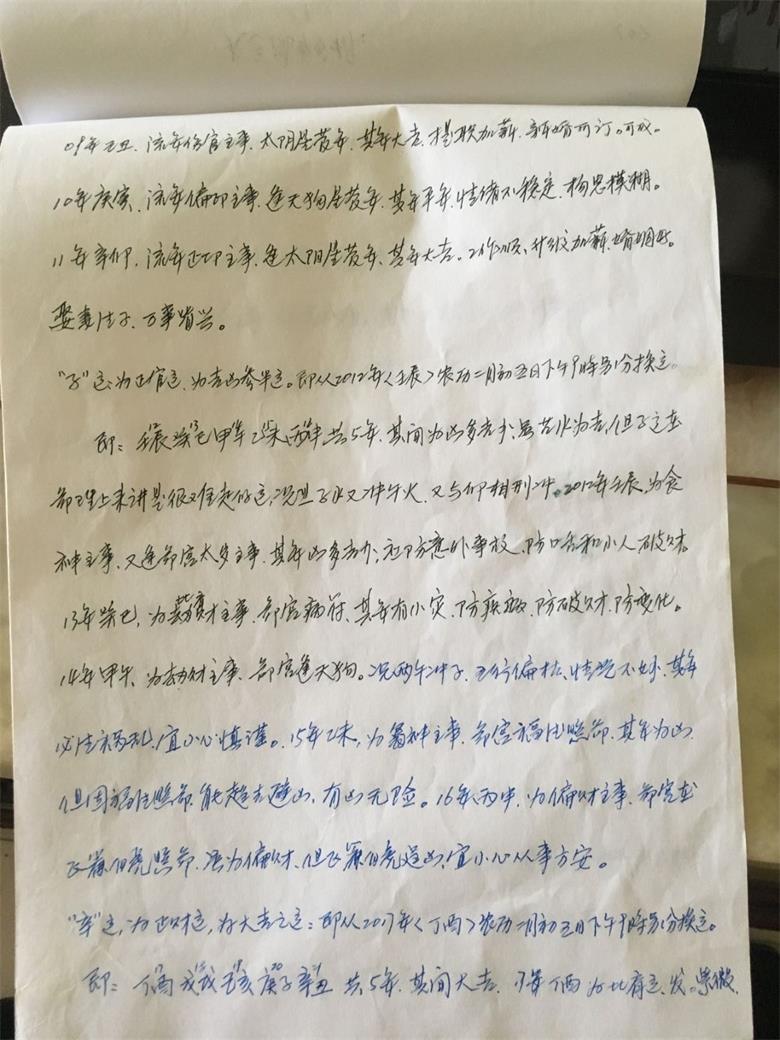 09年己丑、流年伤官主事、太阴星发年、其年大吉、提职加薪、新婚可订。可成。
10年庚寅、流年偏印主事、逢天狗星发年、其年平年、情绪不稳定、构思模糊。
11年辛卯、流年正印主事、逢太阳星发年、其年大吉。工作顺、升级加薪、婚姻好。
娶妻生子、万事皆兴。
"子"运、为正官运、为吉凶参半运。即从2012年〈壬辰〉农历二月初五日下午9时另1分换运。
即：壬辰 癸巳 甲午 乙未 丙申 共5年、其间为凶多吉少、虽苦水为吉、但子运在
命理上来讲是很难走的运、况且子水又冲午火、又与卯相刑冲。2012年壬辰、为食
神主事、又逢命宫太岁主事、其年凶多吉少；应防意外事故、防口舌和小人破财。
13年癸巳、为劫财主事、命宫病符、其年有小灾、防疾病、防破财、防变化。
14年甲午、为劫财主事、命宫逢天狗。况两午冲子、五行偏枯、情况不妙、其年
必生祸乱、宜小心慎谨。15年乙未、为食神主事、命宫福德照命、其年为凶、
但因福德照命、能趋吉避凶、有凶无险。16年丙申、为偏财主事、命宫在
飞廉白虎照命、虽为偏财、但飞廉白虎逞凶、宜小心从事方安。
"辛"运、为正财运、为大吉之运：即从2017年〈丁酉〉农历二月初五日下午9时另1分换运。
即：丁酉 戊戌 己亥 庚子 辛丑 共5年、其间大吉、17年丁酉为比肩运、发。紫微、